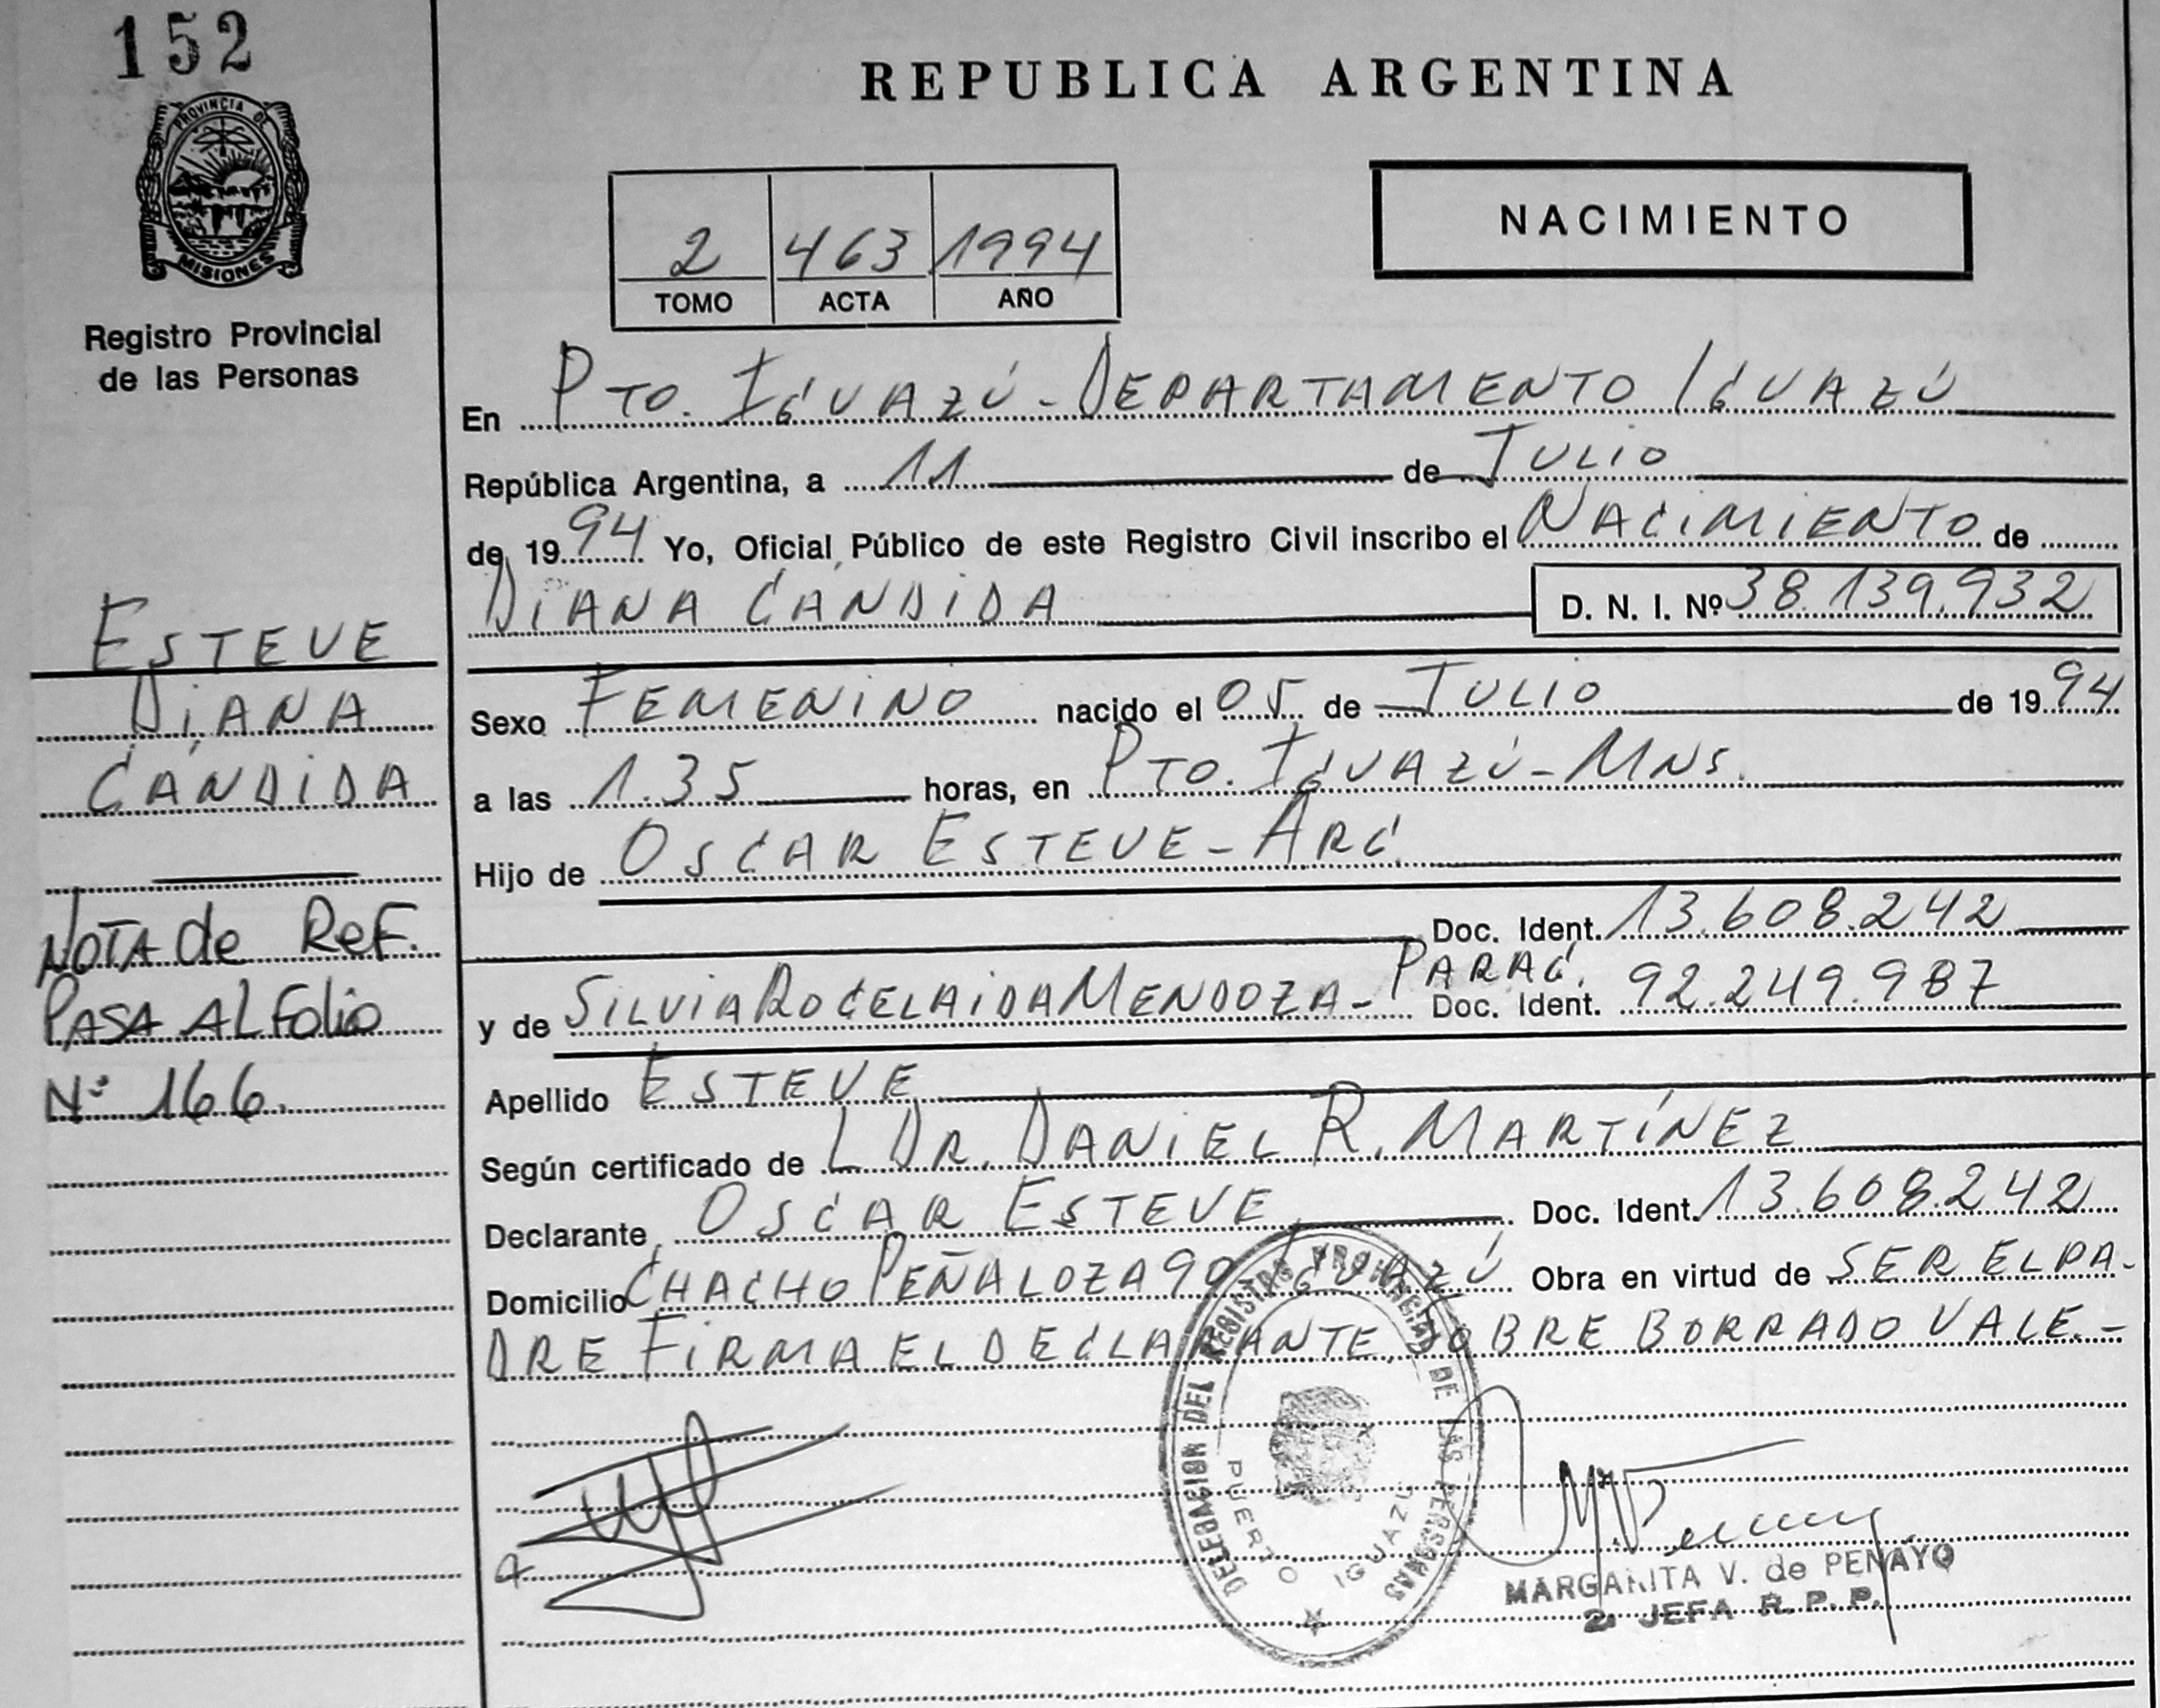 152
PROVINCIA DE
MISIONES
Registro Provincial
de las Personas
REPUBLICA ARGENTINA
2 463 1994
TOMO ACTA AÑO
NACIMIENTO
En PTO. IGUAZÚ - DEPARTAMENTO IGUAZÚ
República Argentina, a 11 de JULIO
de 1994 Yo, Oficial Público de este Registro Civil inscribo el NACIMIENTO de
DIANA CÁNDIDA D. N. I. Nº 38.139.932
ESTEVE
DIANA
CÁNDIDA
Sexo FEMENINO nacido el 05 de JULIO de 1994
a las 1.35 horas, en PTO. IGUAZÚ - MNS.
Hijo de OSCAR ESTEVE - ARG.
Doc. Ident. 13.608.242
y de SILVIA ROGELAIDA MENDOZA - PARAG. Doc. Ident. 92.249.987
NOTA de REF.
PASA AL Folio
Nº 166.
Apellido ESTEVE
Según certificado de L DR. DANIEL R. MARTÍNEZ
Declarante OSCAR ESTEVE Doc. Ident. 13.608.242
Domicilio CHACHO PEÑALOZA 90 IGUAZÚ Obra en virtud de SER EL PA-
DRE FIRMA EL DECLARANTE, SOBRE BORRADO VALE.-
DELEGACION DEL REGISTRO PROVINCIAL DE LAS PERSONAS
PUERTO IGUAZU
MARGARITA V. de PENAYO
2ª JEFA R. P. P.